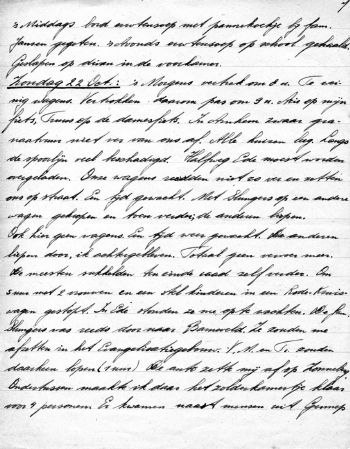 's Middags bord erwtensoep met pannekoekje bij fam.
Jansen gegeten. 's Avonds erwtensoep op school gehaald.
Geslapen op divan in de voorkamer.
Zondag 22 Oct.: 's Morgens vertrek om 8 u. Te wei-
nig wagens. Vertrokken daarom pas om 9 u. Mis op mijn
fiets, Truus op de damesfiets. In Arnhem zwaar gra-
naatvuur niet ver van ons af. Alle huizen leeg. Langs
de spoorlijn veel beschadigd. Halfweg Ede moest worden
overgeladen. Onze wagens reden niet zo ver en zetten
ons op straat. Een tijd gewacht. Met Slungers op een andere
wagen geholpen en toen verder, de anderen liepen.
Ook hier geen wagens. Een tijd weer gewacht. De anderen
liepen door, ik achtergebleven. Totaal geen vervoer meer.
De meesten sukkelden ten einde raad zelf verder. Om
5 uur met 2 nonnen en een stel kinderen in een Rode-Kruis-
wagen gestopt. In Ede stonden ze me op te wachten. De fam.
Slungers was reeds door naar Barneveld. Ze zouden me
afzetten in het Evangelisatiegebouw. V. M. en Tr. zouden
daarheen lopen (1 uur) De auto zette mij af op
Ondertussen maakte ik daar het zolderkamertje klaar
voor 4 personen. Er kwamen naast mensen uit Gennep